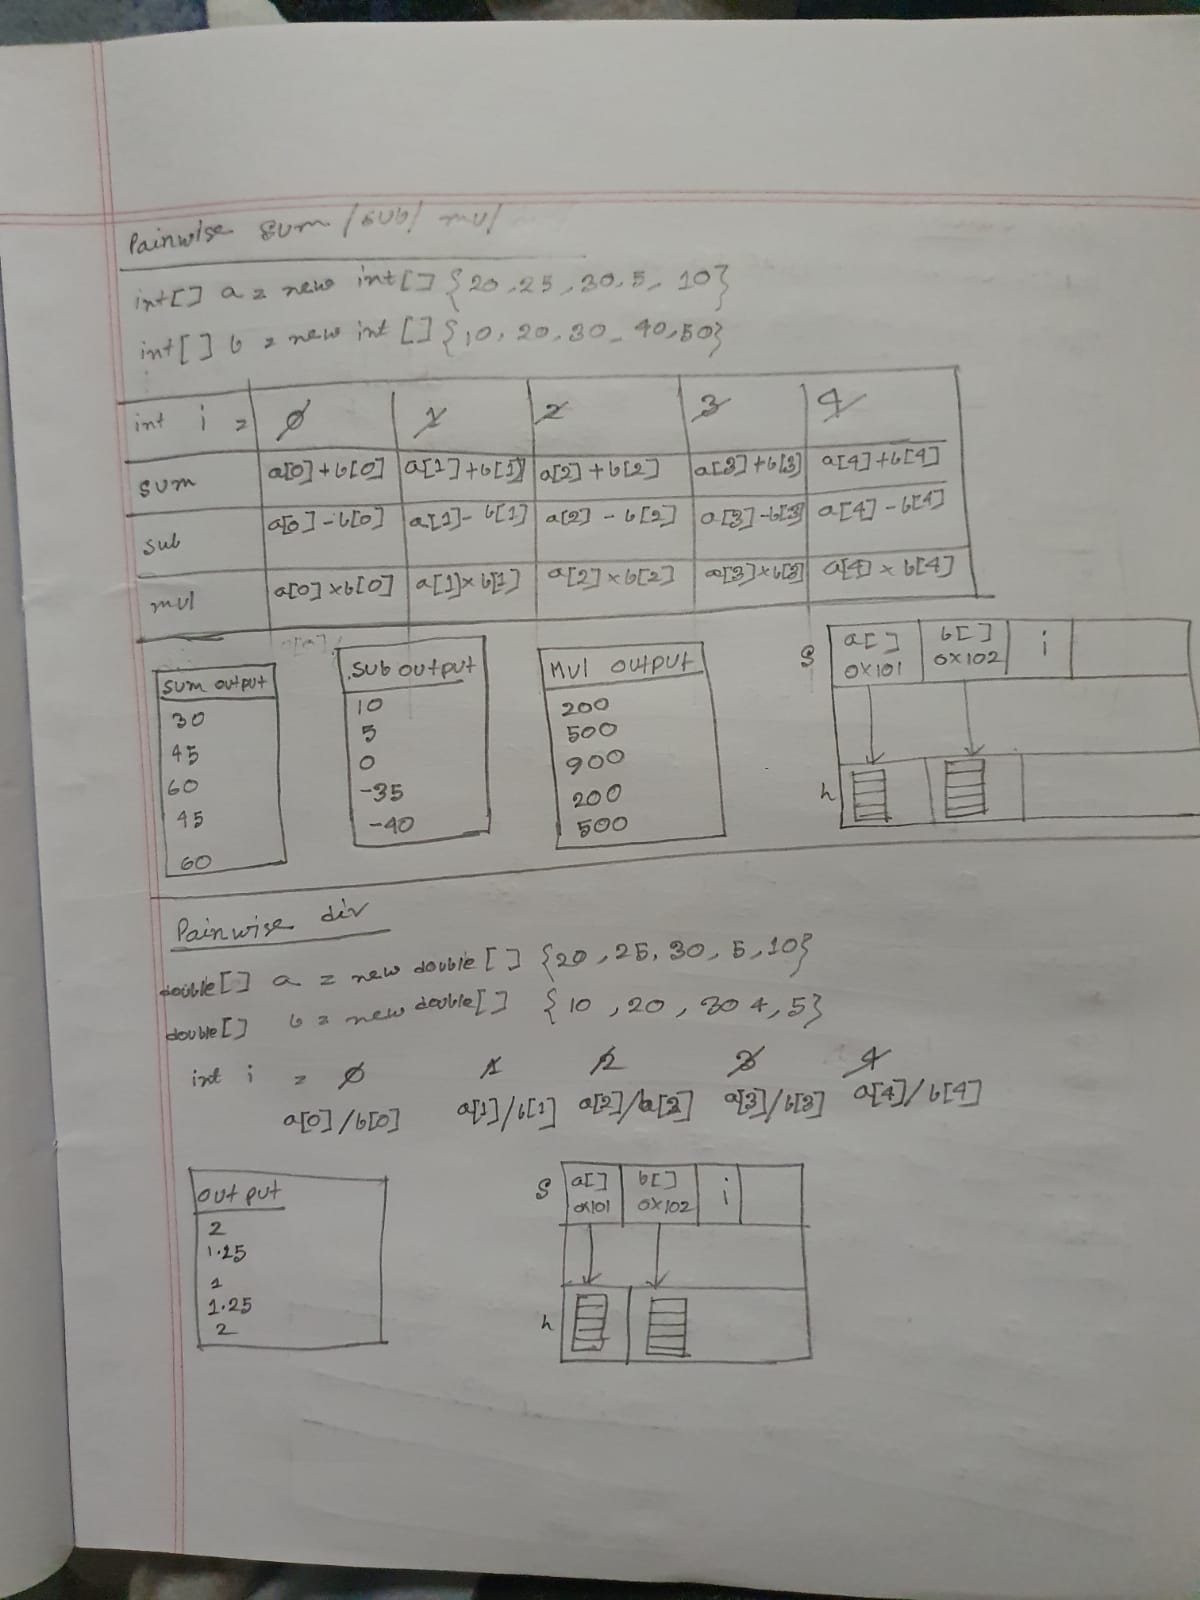 Pairwise sum /sub/ mul
int[] a = new int[] {20,25,30,5,10}
int[] b = new int[] {10,20,30,40,50}
int i = 0 1 2 3 4
sum a[0]+b[0] a[1]+b[1] a[2]+b[2] a[3]+b[3] a[4]+b[4]
sub a[0]-b[0] a[1]-b[1] a[2]-b[2] a[3]-b[3] a[4]-b[4]
mul a[0]×b[0] a[1]×b[1] a[2]×b[2] a[3]×b[3] a[4]×b[4]
sum output
30
45
60
45
60
sub output
10
5
0
-35
-40
Mul output
200
500
900
200
500
S a[] b[] i
0x101 0x102
h
Pairwise div
double[] a = new double[] {20,25,30,5,10}
double[] b = new double[] {10,20,30 4,5}
int i = 0 1 2 3 4
a[0]/b[0] a[1]/b[1] a[2]/b[2] a[3]/b[3] a[4]/b[4]
output
2
1.25
1
1.25
2
S a[] b[] i
0x101 0x102
h